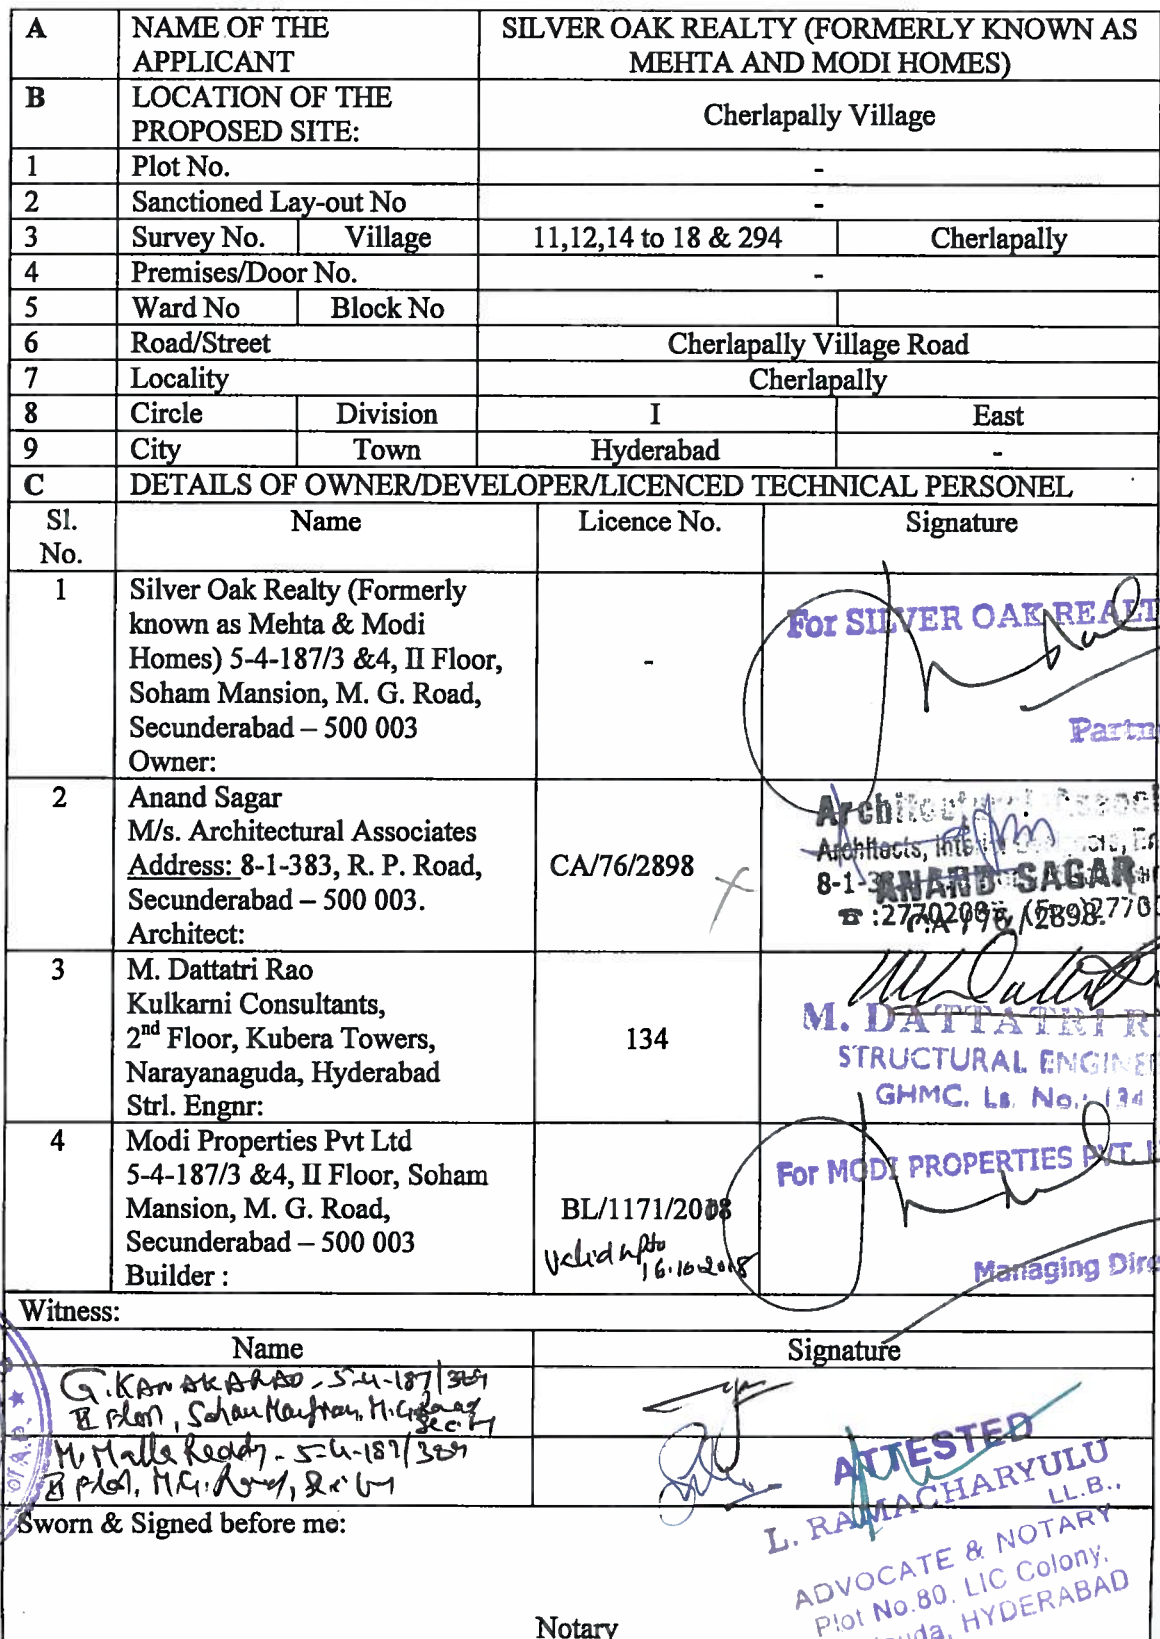 A NAME OF THE APPLICANT SILVER OAK REALTY (FORMERLY KNOWN AS MEHTA AND MODI HOMES)
B LOCATION OF THE PROPOSED SITE: Cherlapally Village
1 Plot No. -
2 Sanctioned Lay-out No -
3 Survey No. Village 11,12,14 to 18 & 294 Cherlapally
4 Premises/Door No. -
5 Ward No Block No
6 Road/Street Cherlapally Village Road
7 Locality Cherlapally
8 Circle Division I East
9 City Town Hyderabad -
C DETAILS OF OWNER/DEVELOPER/LICENCED TECHNICAL PERSONEL
Sl. No. Name Licence No. Signature
1 Silver Oak Realty (Formerly
known as Mehta & Modi
Homes) 5-4-187/3 &4, II Floor,
Soham Mansion, M. G. Road,
Secunderabad – 500 003
Owner:
-
For SILVER OAK REALT
Partn
2 Anand Sagar
M/s. Architectural Associates
Address: 8-1-383, R. P. Road,
Secunderabad – 500 003.
Architect:
CA/76/2898
Architectural Associ
Architects,
8-1-3
ANAND SAGAR
CA / 76 / 2898.
3 M. Dattatri Rao
Kulkarni Consultants,
2nd Floor, Kubera Towers,
Narayanaguda, Hyderabad
Strl. Engnr:
134
M. DATTATRI R
STRUCTURAL ENGINE
GHMC. Ls. No.: 134
4 Modi Properties Pvt Ltd
5-4-187/3 &4, II Floor, Soham
Mansion, M. G. Road,
Secunderabad – 500 003
Builder :
BL/1171/2008
Valid upto
16.10.2018
For MODI PROPERTIES PVT. L
Managing Dire
Witness:
Name Signature
G. KANAKARAO - 5-4-187/3&4
II Floor, Soham Mansion, M.G. Road
Sec-by
M. Malla Reddy - 5-4-187/3&4
II Floor, M.G. Road, Sec-by
ATTESTED
L. RAMACHARYULU
LL.B.,
ADVOCATE & NOTARY
Plot No.80, LIC Colony,
HYDERABAD
Sworn & Signed before me:
Notary